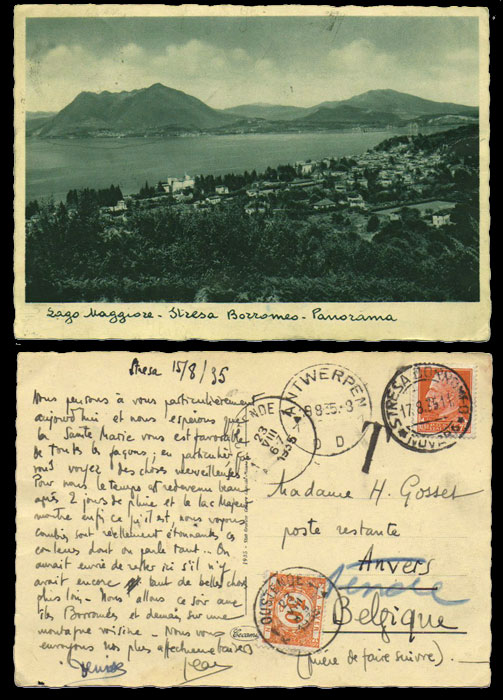 Lago Maggiore - Stresa Borromeo - Panorama
Stresa 15/8/35
Nous pensons à vous particulièrement
aujourd'hui et nous espérons que
la Sainte Marie vous est favorable
de toutes les façons; en particulier que
vous voyez des choses merveilleuses.
Pour nous le temps est redevenu beau
après 2 jours de pluie et le lac Majeur
montre enfin ce qu'il est, nous voyons
combien sont réellement étonnantes ces
couleurs dont on parle tant. On
aurait envie de rester ici s'il n'y
avait encore tant de belles choses
plus loin. Nous allons ce soir aux
îles Borromées et demain sur une
montagne voisine. Nous vous
envoyons nos plus affectueux baisers
Jean
1935
Cecami
OOSTENDE
23
VIII
1935
ANTWERPEN
D D
STRESA BORROMEO
NOVARA
T
Madame H. Gosset
poste restante
Anvers
Belgique
(prière de faire suivre).
OOSTENDE